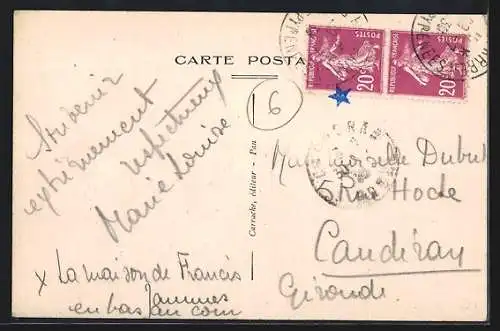 CARTE POSTA
Souvenir
extrêmement
respectueux
Marie Louise
6
x La maison de Francis
Jammes
en bas au coin
Carrache, éditeur - Pau
REPUBLIQUE FRANÇAISE
POSTES
20c
REPUBLIQUE FRANÇAISE
POSTES
20c
Mademoiselle
5 Rue
Caudéran
Gironde